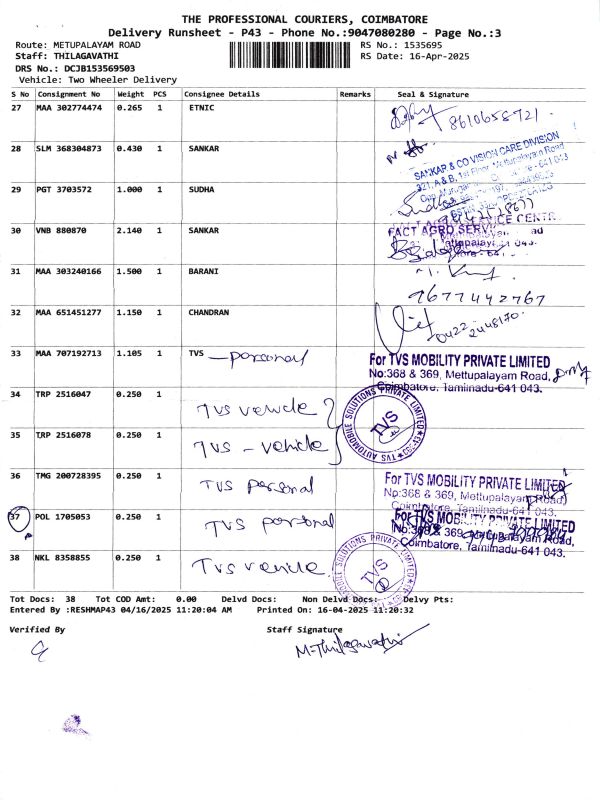 THE PROFESSIONAL COURIERS, COIMBATORE
Delivery Runsheet - P43 - Phone No.:9047080280 - Page No.:3
Route: METUPALAYAM ROAD RS No.: 1535695
Staff: THILAGAVATHI RS Date: 16-Apr-2025
DRS No.: DCJB153569503
Vehicle: Two Wheeler Delivery
S No Consignment No Weight PCS Consignee Details Remarks Seal & Signature
27 MAA 302774474 0.265 1 ETNIC 8610658721
28 SLM 368304873 0.430 1 SANKAR
SANKAR & CO VISION CARE DIVISION
321, A & B, 1st Floor, Mettupalayam Road
29 PGT 3703572 1.000 1 SUDHA
30 VNB 880870 2.140 1 SANKAR
FACT AGRO SERVICE CENTR
31 MAA 303240166 1.500 1 BARANI
7677442767
32 MAA 651451277 1.150 1 CHANDRAN
0422 2448170
33 MAA 707192713 1.105 1 TVS - personal
For TVS MOBILITY PRIVATE LIMITED
No:368 & 369, Mettupalayam Road,
Coimbatore, Tamilnadu-641 043.
34 TRP 2516047 0.250 1 TVS vehicle
AUTOMOBILE SOLUTIONS PRIVATE LIMITED
TVS
35 TRP 2516078 0.250 1 TVS - vehicle
36 TMG 200728395 0.250 1 TVS personal
For TVS MOBILITY PRIVATE LIMITED
No:368 & 369, Mettupalayam Road,
Coimbatore, Tamilnadu-641 043.
37 POL 1705053 0.250 1 TVS personal
For TVS MOBILITY PRIVATE LIMITED
No:368 & 369, Mettupalayam Road,
Coimbatore, Tamilnadu-641 043.
38 NKL 8358855 0.250 1 TVS vehicle
SOLUTIONS PRIVATE LIMITED
TVS
Tot Docs: 38 Tot COD Amt: 0.00 Delvd Docs: Non Delvd Docs: Delvy Pts:
Entered By :RESHMAP43 04/16/2025 11:20:04 AM Printed On: 16-04-2025 11:20:32
Verified By Staff Signature
M.Thilagavathi